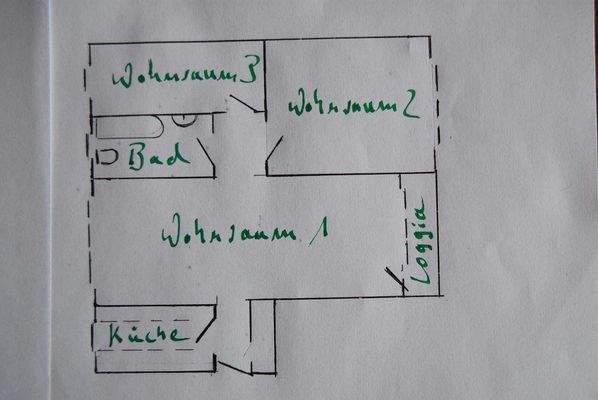 Wohnraum 3
Wohnraum 2
Bad
Wohnraum 1
Loggia
Küche